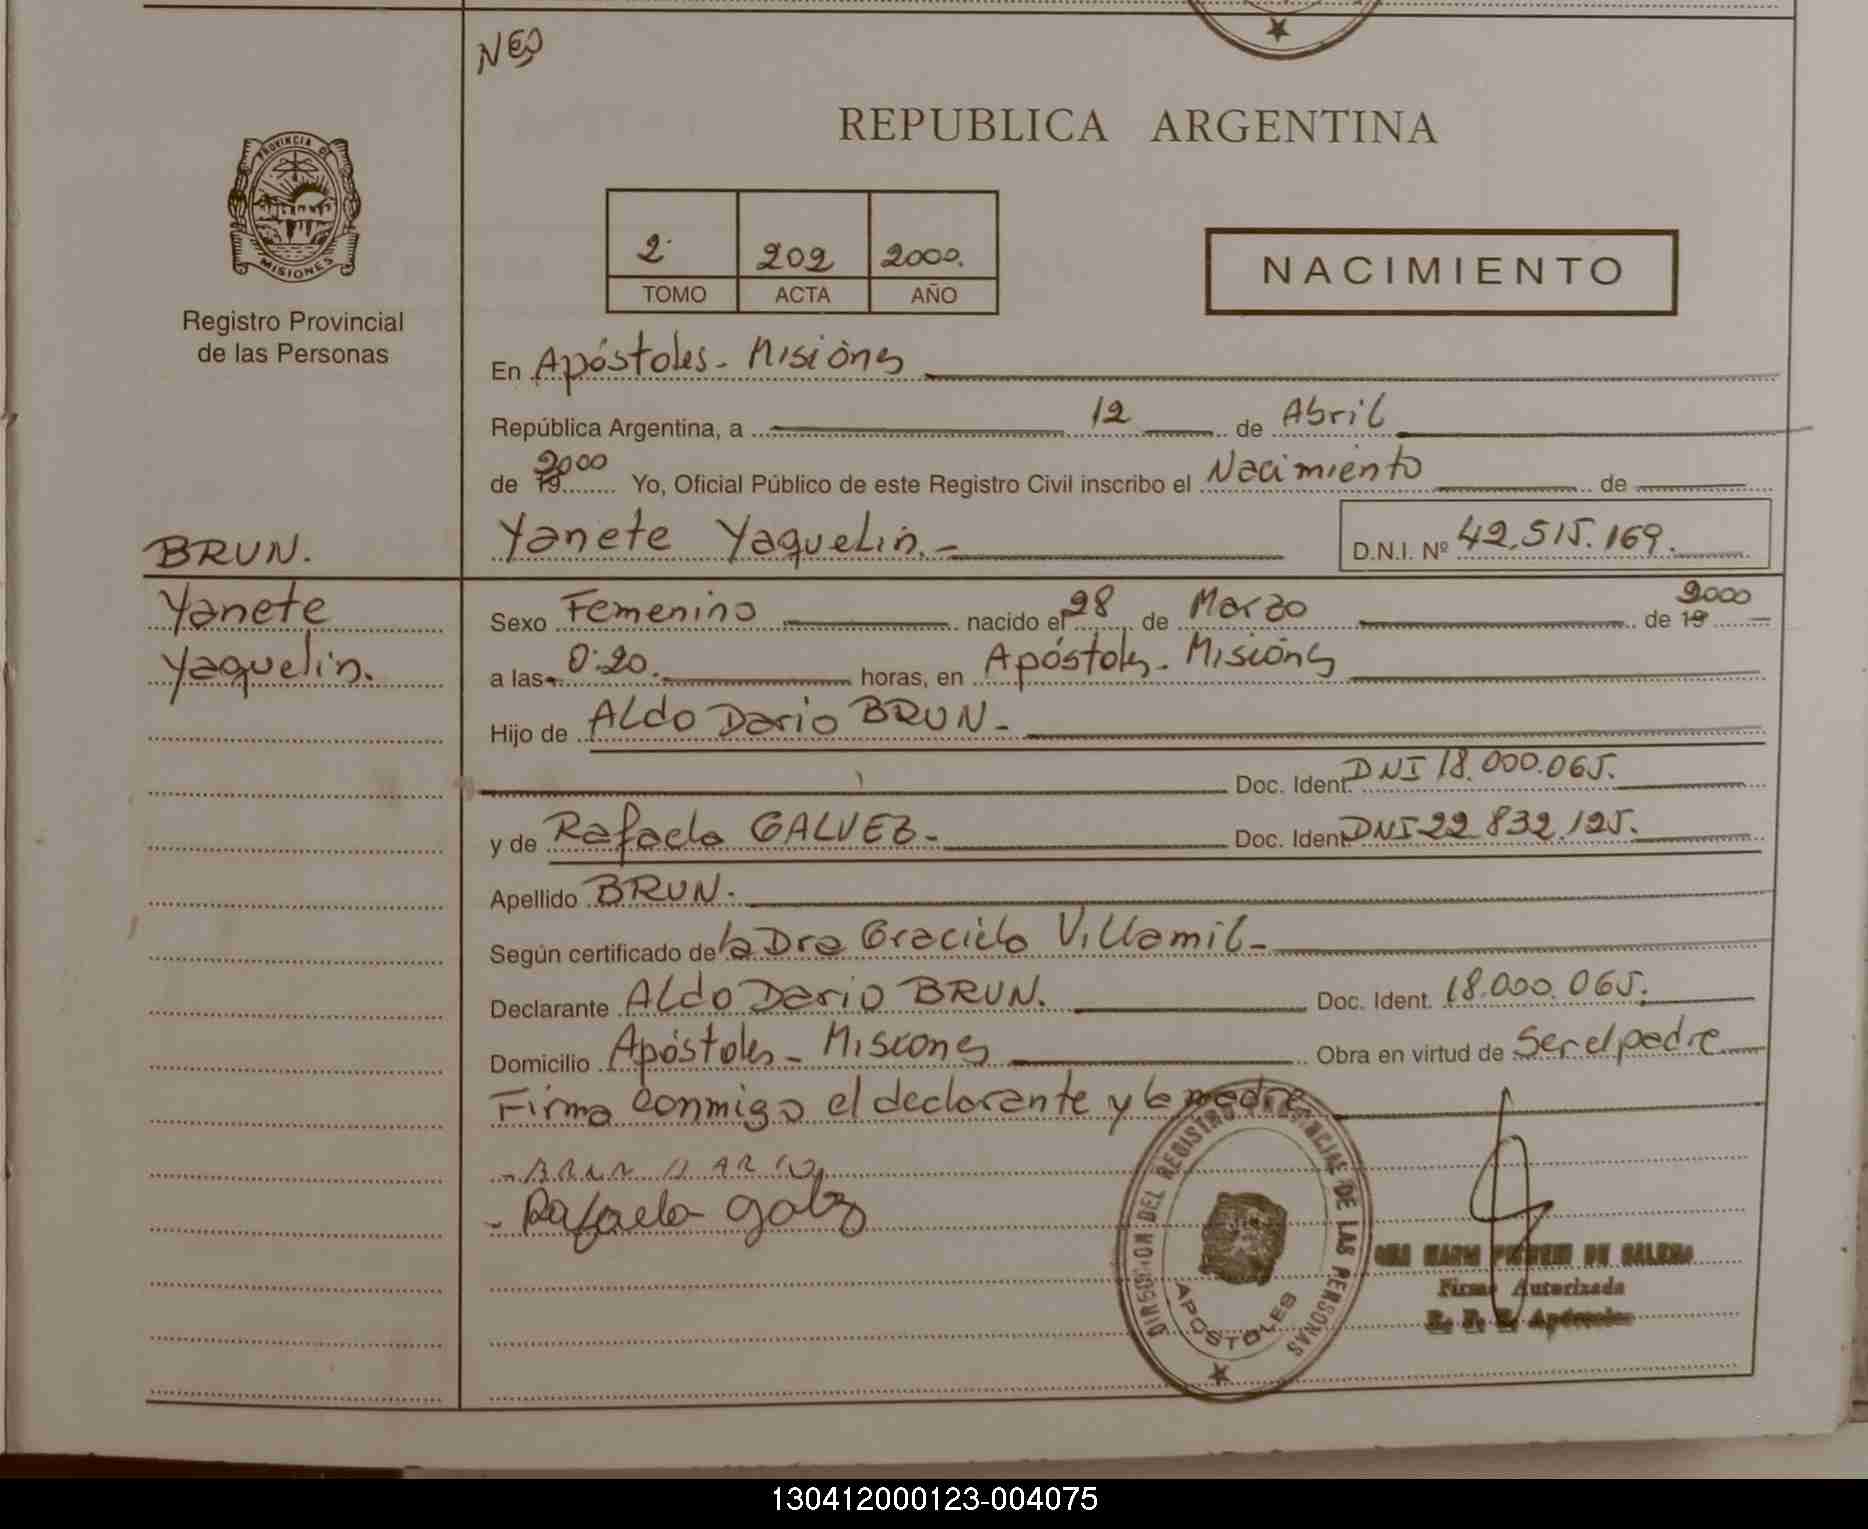 NEO
REPUBLICA ARGENTINA
PROVINCIA DE
MISIONES
Registro Provincial
de las Personas
2 202 2000.
TOMO ACTA AÑO
NACIMIENTO
En Apóstoles - Misiones
República Argentina, a 12 de Abril
de 19 2000 Yo, Oficial Público de este Registro Civil inscribo el Nacimiento de
BRUN.
Yanete Yaquelin.- D.N.I. Nº 42.515.169.
Yanete
Yaquelin.
Sexo Femenino nacido el 28 de Marzo de 19 2000
a las 0:20. horas, en Apóstoles - Misiones
Hijo de Aldo Dario BRUN -
Doc. Ident. DNI 18.000.065.
y de Rafaela GALVEZ - Doc. Ident. DNI 22 832.125.
Apellido BRUN.
Según certificado de la Dra Graciela Villamil -
Declarante Aldo Dario BRUN. Doc. Ident. 18.000.065.
Domicilio Apóstoles - Misiones Obra en virtud de Ser el padre
Firma conmigo el declarante y la madre
- BRUN DARIO
- Rafaela galvz
DIRECCION DEL REGISTRO PROVINCIAL DE LAS PERSONAS
APOSTOLES
Firma Autorizada
R. P. P. Apóstoles
130412000123-004075